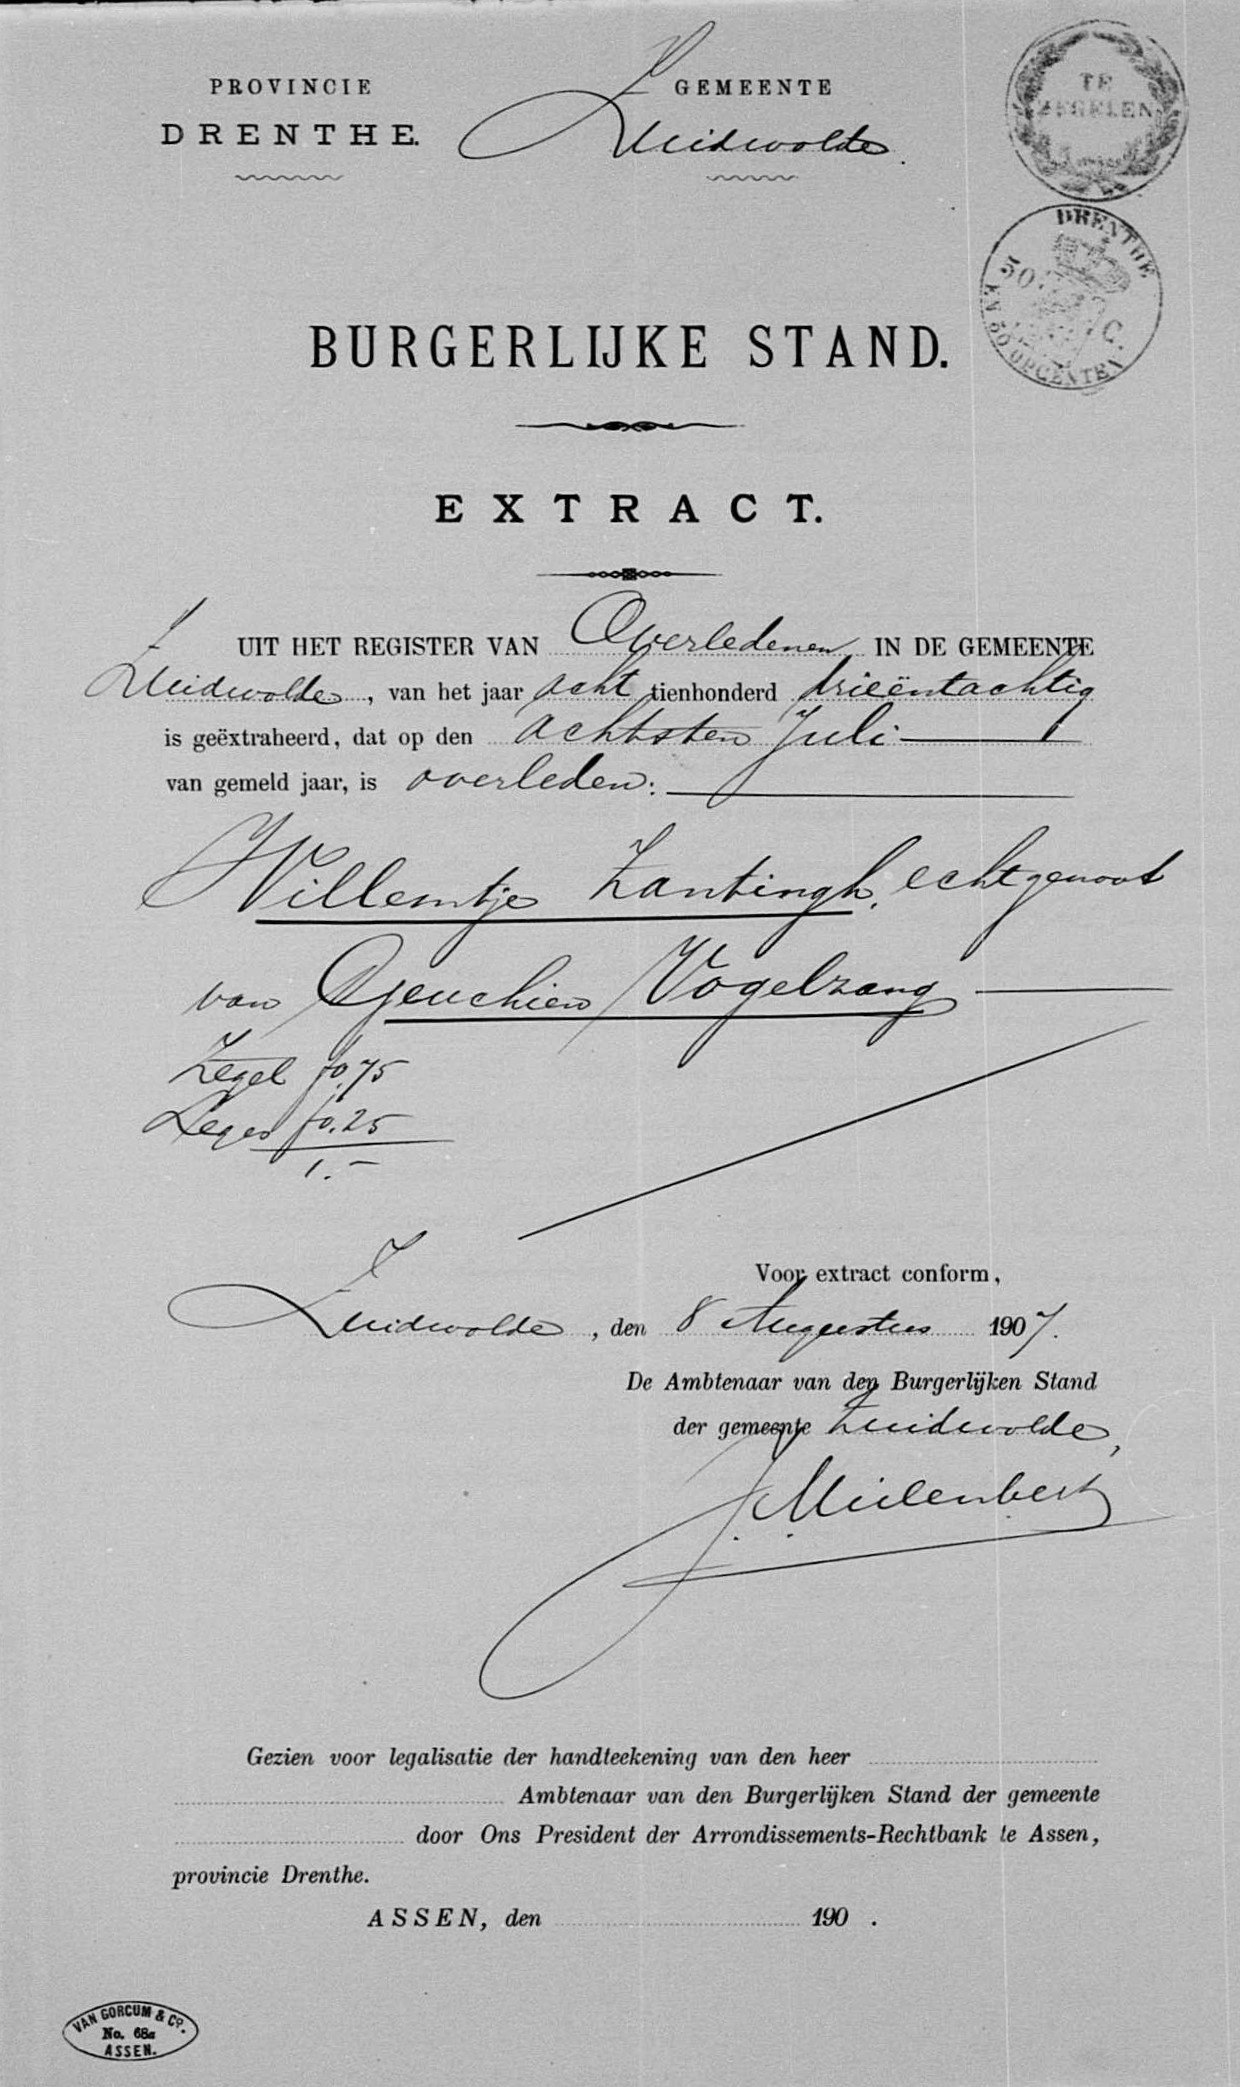 PROVINCIE
DRENTHE.
GEMEENTE
Zuidwolde.
TE
ZEGELEN
DRENTHE
50 C.
EN 50 OPCENTEN
BURGERLIJKE STAND.
EXTRACT.
UIT HET REGISTER VAN Overledenen IN DE GEMEENTE
Zuidwolde, van het jaar acht tienhonderd drieëntachtig
is geëxtraheerd, dat op den achtsten Juli
van gemeld jaar, is overleden:
Willemtje Zantingh, echtgenoot
van Geuchien Vogelzang
Zegel f0.75
Leges f0.25
1.-
Voor extract conform,
Zuidwolde, den 8 Augustus 1907.
De Ambtenaar van den Burgerlijken Stand
der gemeente Zuidwolde,
Gezien voor legalisatie der handteekening van den heer
Ambtenaar van den Burgerlijken Stand der gemeente
door Ons President der Arrondissements-Rechtbank te Assen,
provincie Drenthe.
ASSEN, den 190 .
VAN GORCUM & Co.
No. 68a
ASSEN.